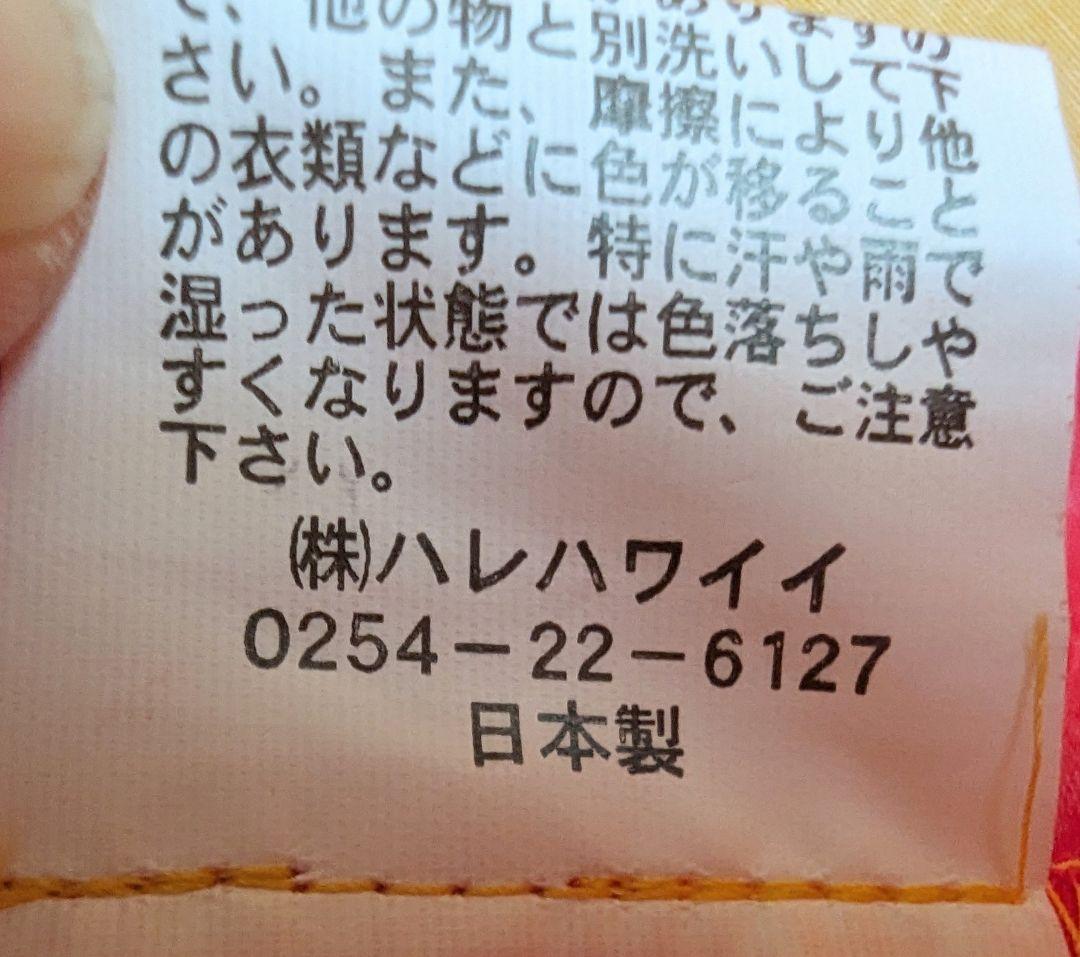 、他の物と別洗いして下
さい。また、摩擦により他
の衣類などに色が移ること
があります。特に汗や雨で
湿った状態では色落ちしや
すくなりますので、ご注意
下さい。
㈱ハレハワイイ
0254-22-6127
日本製